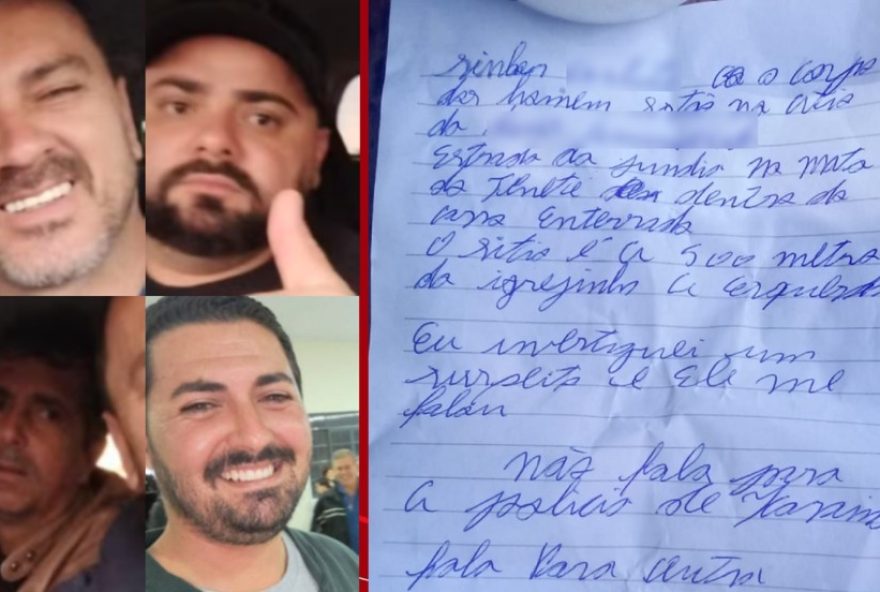 sinhor o corpo
dos homem estão na citio
da
Estrada da jundia na mata
do Tenete dentro do
carro Enterrado
O sitio é a 500 metro
da igrejinha a Esquerda
Eu investiguei um
suspeito e Ele me
falou
não fala para
a policia de
fala Para outra